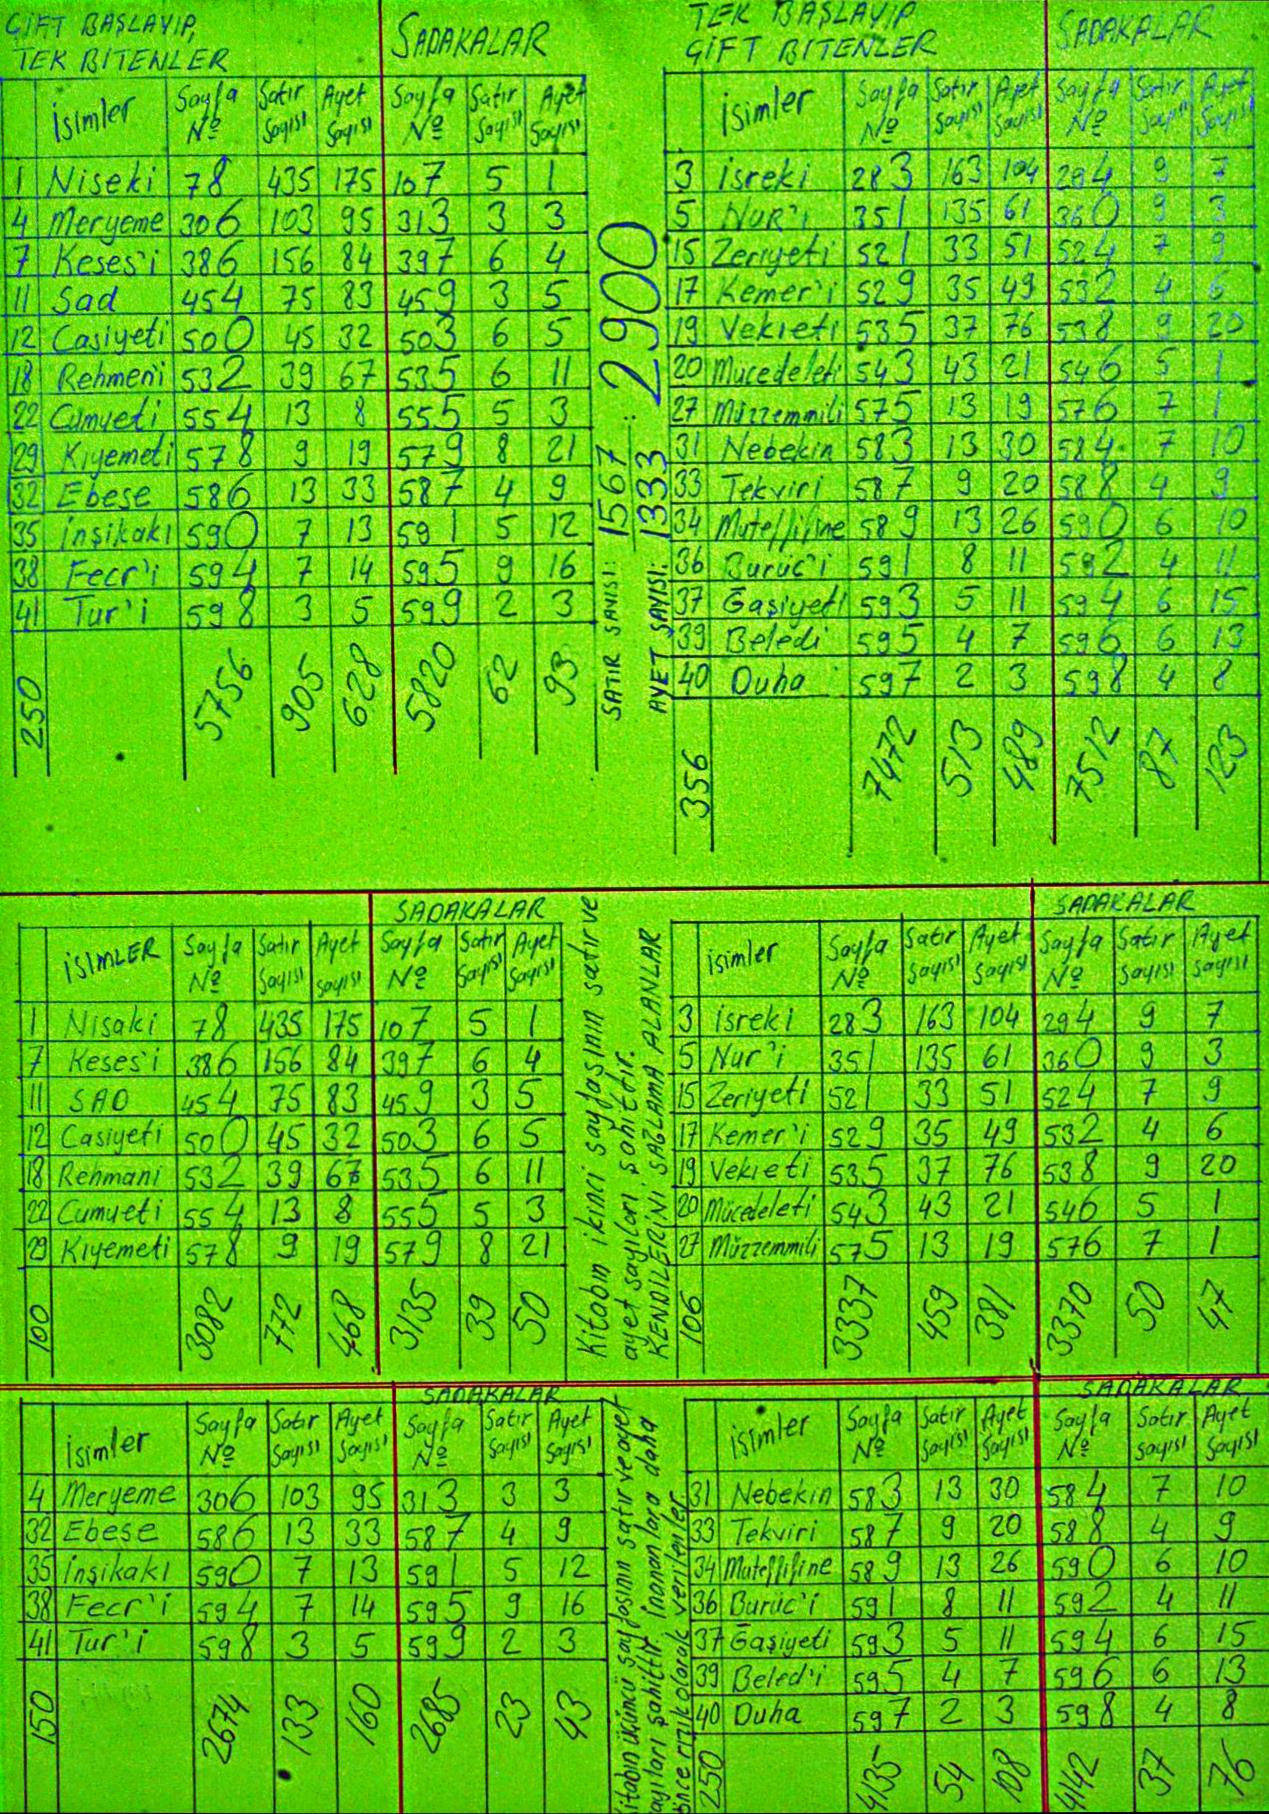 ÇİFT BAŞLAYIP,
TEK BİTENLER
SADAKALAR
İsimler Sayfa Nº Satır Sayısı Ayet Sayısı Sayfa Nº Satır Sayısı Ayet Sayısı
1 Niseki 78 435 175 107 5 1
4 Meryeme 306 103 95 313 3 3
7 Keses'i 386 156 84 397 6 4
11 Sad 454 75 83 459 3 5
12 Casiyeti 500 45 32 503 6 5
18 Rehmeni 532 39 67 535 6 11
22 Cumyeti 554 13 8 555 5 3
29 Kıyemeti 578 9 19 579 8 21
32 Ebese 586 13 33 587 4 9
35 inşikakı 590 7 13 591 5 12
38 Fecr'i 594 7 14 595 9 16
41 Tur'i 598 3 5 599 2 3
250 5756 905 628 5820 62 93
SATIR SAYISI: 1567
AYET SAYISI: 1333 : 2900
TEK BAŞLAYIP
ÇİFT BİTENLER
SADAKALAR
İsimler Sayfa Nº Satır Sayısı Ayet Sayısı Sayfa Nº Satır Sayısı Ayet Sayısı
3 isreki 283 163 104 294 9 7
5 Nur'i 351 135 61 360 9 3
15 Zeriyeti 521 33 51 524 7 9
17 Kemer'i 529 35 49 532 4 6
19 Vekıeti 535 37 76 538 9 20
20 Mücedeleti 543 43 21 546 5 1
27 Müzzemmili 575 13 19 576 7 1
31 Nebekin 583 13 30 584 7 10
33 Tekviri 587 9 20 588 4 9
34 Muteffifine 589 13 26 590 6 10
36 Buruc'i 591 8 11 592 4 11
37 Ğaşiyeti 593 5 11 594 6 15
39 Beledi 595 4 7 596 6 13
40 Duha 597 2 3 598 4 8
356 7472 513 489 7512 87 123
SADAKALAR
İSİMLER Sayfa Nº Satır Sayısı Ayet sayısı Sayfa Nº Satır Sayısı Ayet Sayısı
1 Nisaki 78 435 175 107 5 1
7 Keses'i 386 156 84 397 6 4
11 SAD 454 75 83 459 3 5
12 Casiyeti 500 45 32 503 6 5
18 Rehmani 532 39 67 535 6 11
22 Cumueti 554 13 8 555 5 3
29 Kıyemeti 578 9 19 579 8 21
100 3082 772 468 3135 39 50
Kitabın ikinci sayfasının satır ve
ayet sayıları şahittir.
KENDİLERİNİ SAĞLAMA ALANLAR
SADAKALAR
isimler Sayfa Nº Satır sayısı Ayet sayısı Sayfa Nº Satır sayısı Ayet sayısı
3 isreki 283 163 104 294 9 7
5 Nur'i 351 135 61 360 9 3
15 Zeriyeti 521 33 51 524 7 9
17 Kemer'i 529 35 49 532 4 6
19 Vekıeti 535 37 76 538 9 20
20 Mücedeleti 543 43 21 546 5 1
27 Müzzemmili 575 13 19 576 7 1
106 3337 459 381 3370 50 47
SADAKALAR
isimler Sayfa Nº Satır Sayısı Ayet Sayısı Sayfa Nº Satır Sayısı Ayet Sayısı
4 Meryeme 306 103 95 313 3 3
32 Ebese 586 13 33 587 4 9
35 inşikakı 590 7 13 591 5 12
38 Fecr'i 594 7 14 595 9 16
41 Tur'i 598 3 5 599 2 3
150 2674 133 160 2685 23 43
üçüncü sayfasının satır ve ayet
sayıları şahittir inananlara daha
önce rızık olarak verilenler
SADAKALAR
isimler Sayfa Nº Satır sayısı Ayet Sayısı Sayfa Nº Satır sayısı Ayet Sayısı
31 Nebekin 583 13 30 584 7 10
33 Tekviri 587 9 20 588 4 9
34 Muteffifine 589 13 26 590 6 10
36 Buruc'i 591 8 11 592 4 11
37 Ğaşiyeti 593 5 11 594 6 15
39 Beled'i 595 4 7 596 6 13
40 Duha 597 2 3 598 4 8
250 4135 54 108 4142 37 76